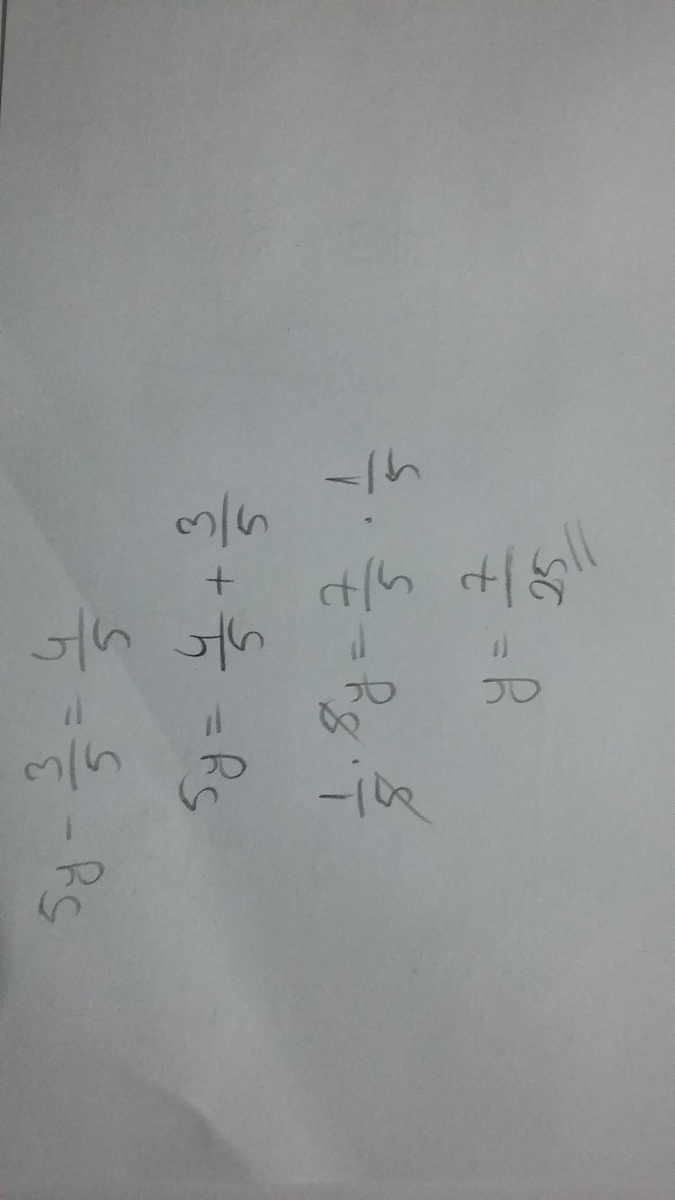 5y - 3/5 = 4/5
5y = 4/5 + 3/5
1/5 · 5y = 7/5 · 1/5
y = 7/25